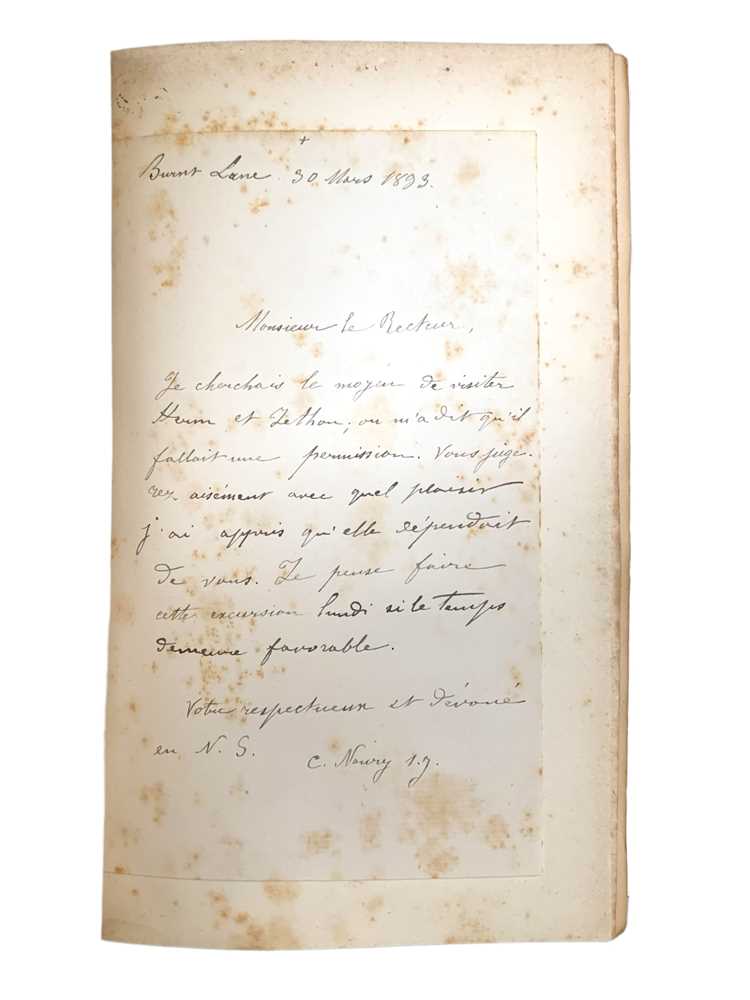 +
Burnt Lane. 30 Mars 1893.
Monsieur le Recteur,
Je cherchais le moyen de visiter
Herm et Jethou; on m'a dit qu'il
fallait une permission. Vous juge-
rez aisément avec quel plaisir
j'ai appris qu'elle dépendait
de vous. Je pense faire
cette excursion lundi si le temps
demeure favorable.
Votre respectueux et dévoué
en N. S.
C. Noury s.j.